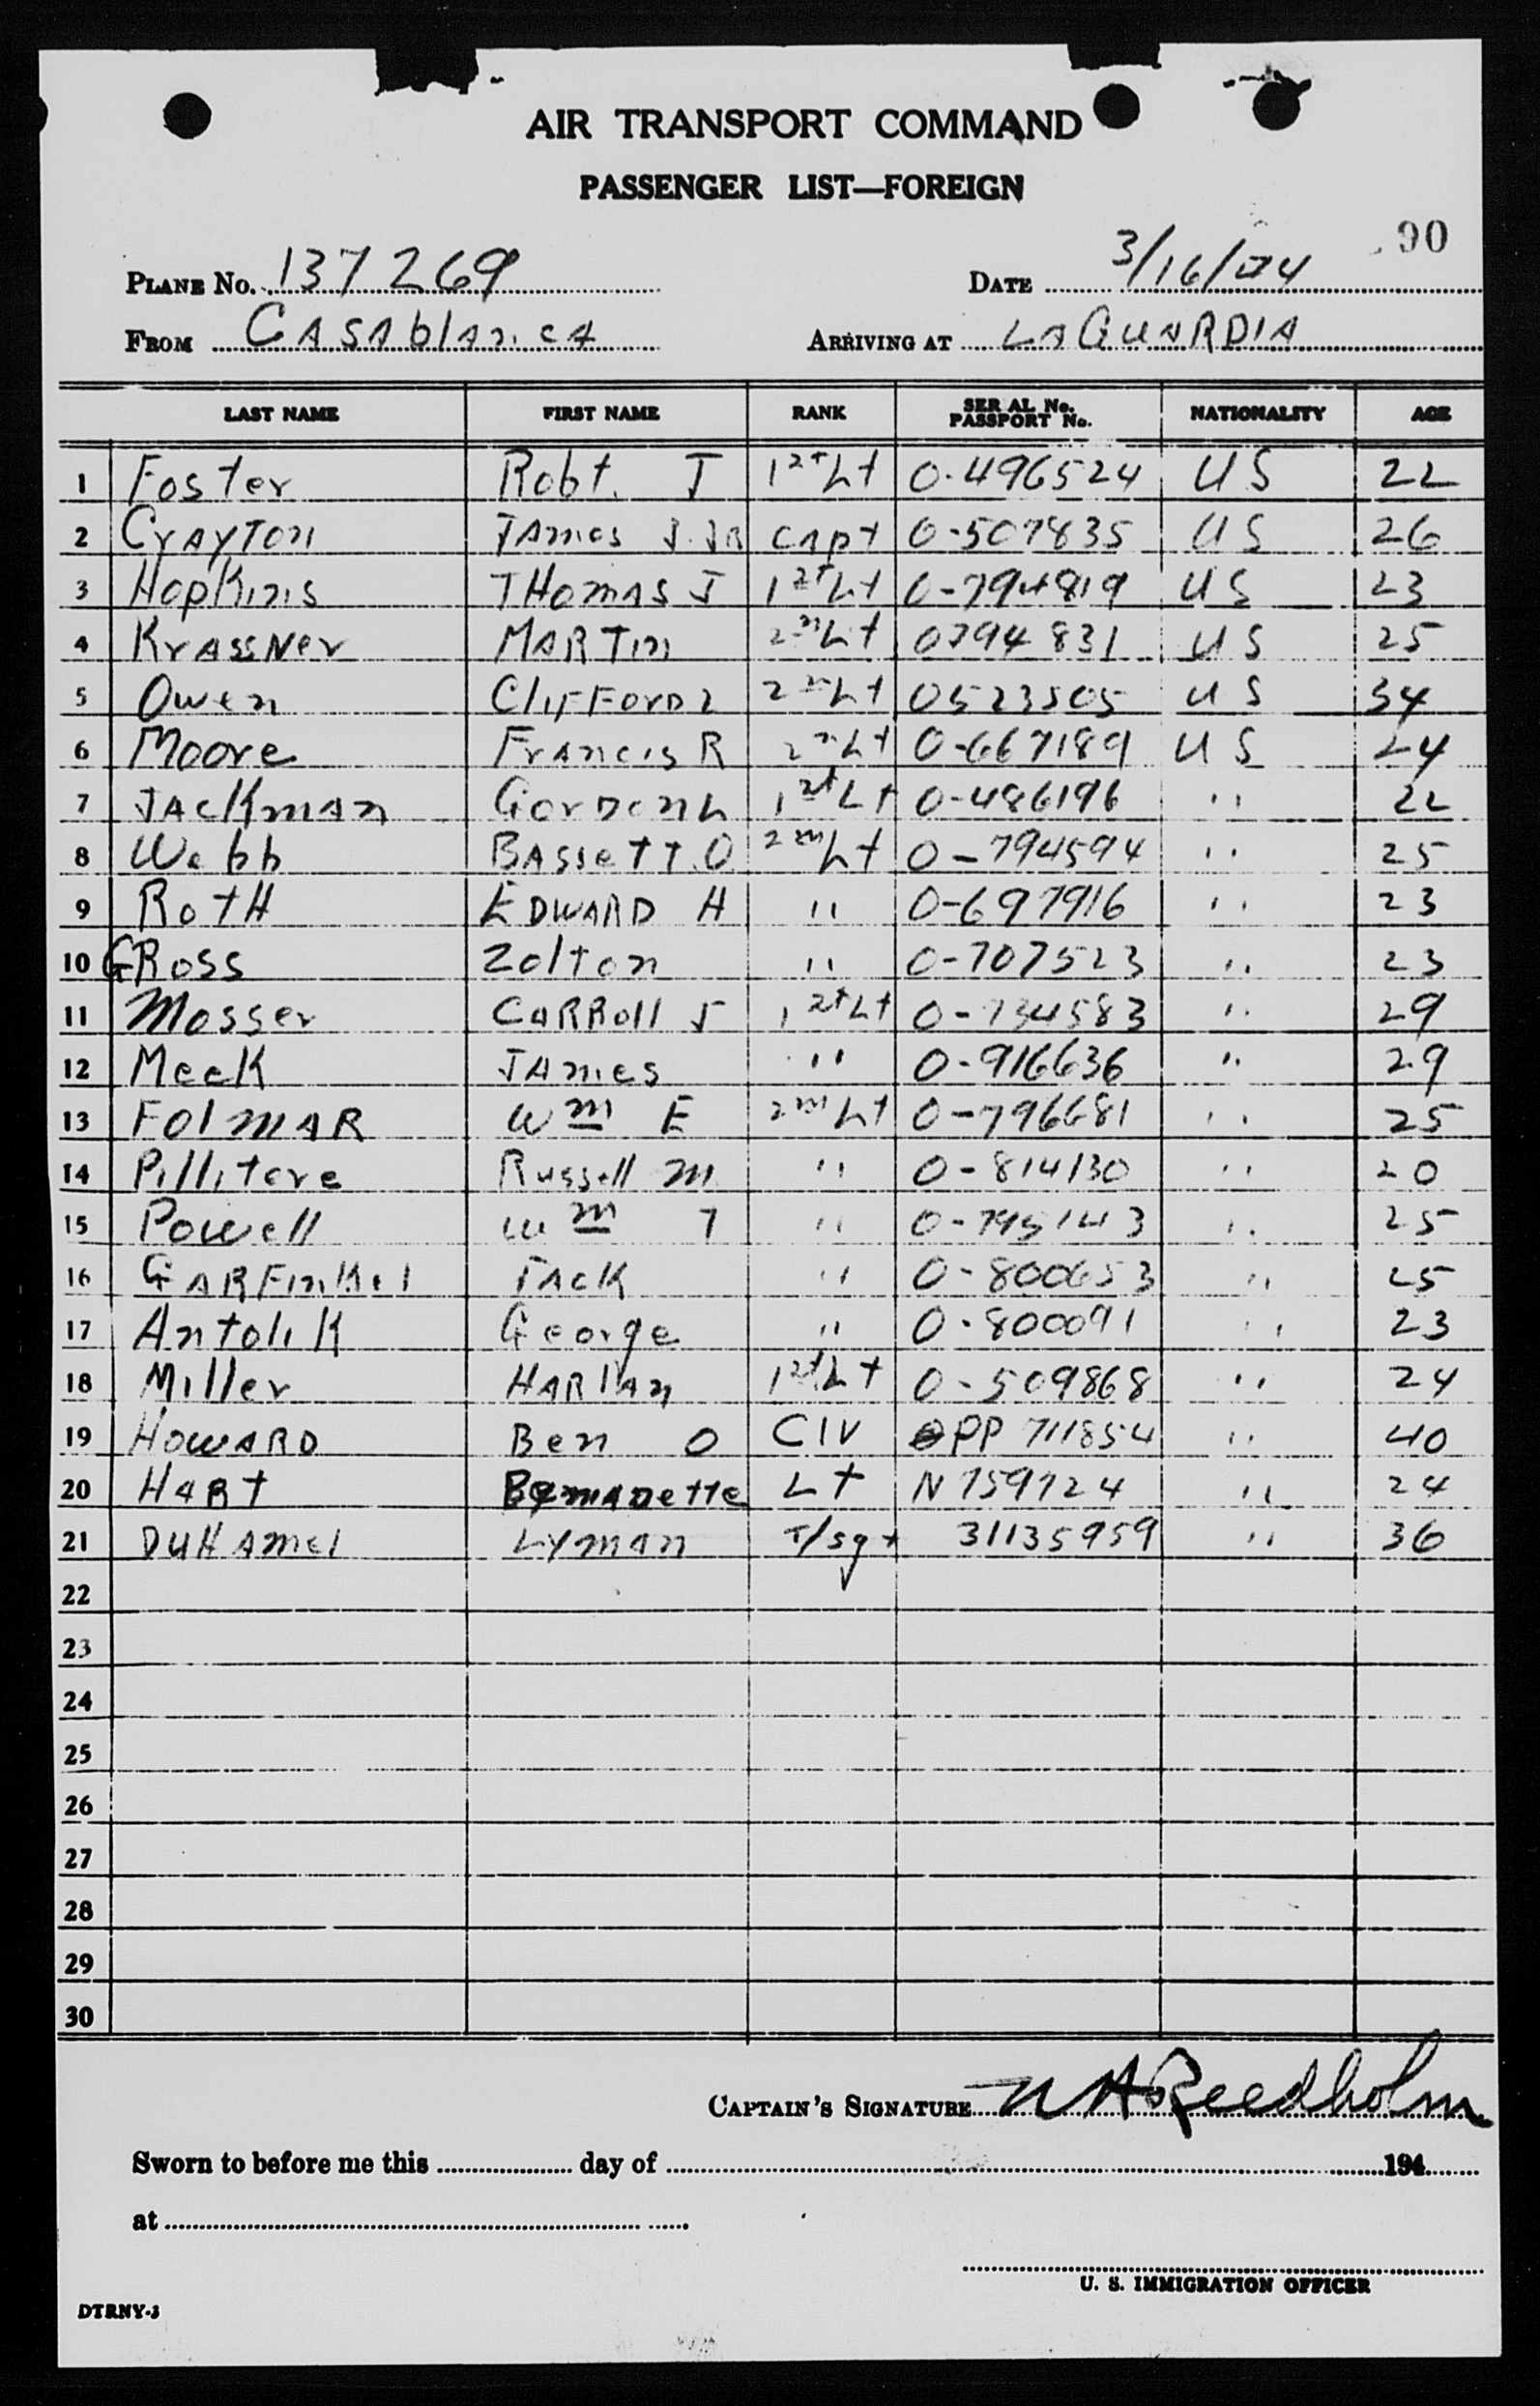 AIR TRANSPORT COMMAND
PASSENGER LIST—FOREIGN
90
PLANE No. 137269 DATE 3/16/44
FROM CASAblAnCA ARRIVING AT LAGUARDIA
LAST NAME FIRST NAME RANK SERIAL No. PASSPORT No. NATIONALITY AGE
1 Foster Robt. J 1st Lt 0-496524 US 22
2 CrAyTon JAmes J. JR CApt 0-507835 US 26
3 HopKins THomAS J 1st Lt 0-794819 US 23
4 KrAssNer MARTin 2nd Lt 0794831 US 25
5 Owen CliFForD L 2nd Lt 0523505 US 34
6 Moore FrAncis R 2nd Lt 0-667189 US 24
7 JAckmAn GorDon L 1st Lt 0-486196 " 22
8 Webb BAsseTT O 2nd Lt 0-794594 " 25
9 RotH EDWARD H " 0-697916 " 23
10 GRoss Zolton " 0-707523 " 23
11 Mosser CARRoll J 1st Lt 0-734583 " 29
12 MeeK JAmes " 0-916636 " 29
13 FolmAR Wm E 2nd Lt 0-796681 " 25
14 Pillitere Russell M " 0-814130 " 20
15 Powell Wm T " 0-795143 " 25
16 GARFinKel JAcK " 0-800653 " 25
17 AntoliK George " 0-800091 " 23
18 Miller HARlAn 1st Lt 0-509868 " 24
19 HowARD Ben O CIV PP 711854 " 40
20 HART BernADette Lt N 759724 " 24
21 DuHAmel LymAn T/Sgt 31135959 " 36
22
23
24
25
26
27
28
29
30
CAPTAIN'S SIGNATURE Reedholm
Sworn to before me this day of 194
at
U. S. IMMIGRATION OFFICER
DTRNY-3